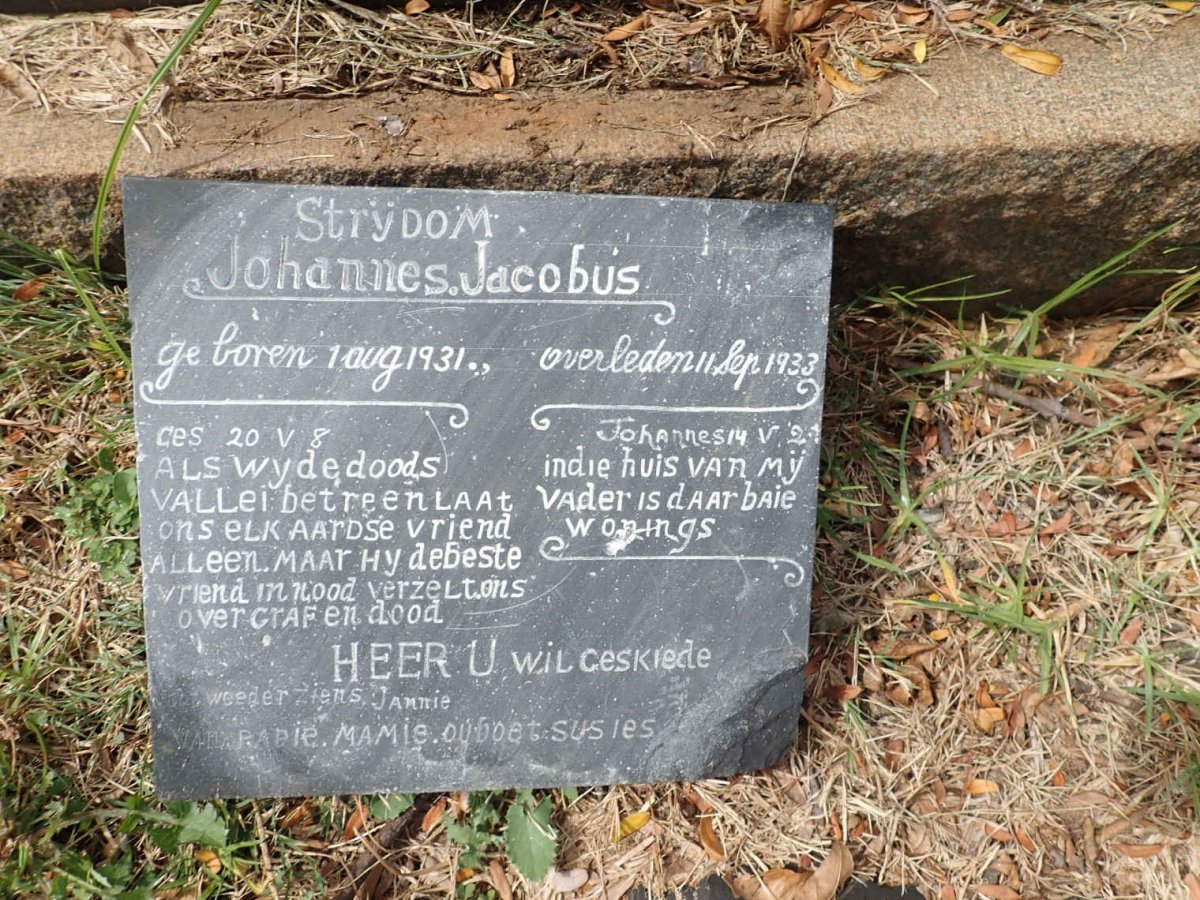 Strÿdom
Johannes.Jacobus
geboren 1 aug 1931.,
overleden 11 Sep 1933
Ges 20 V 8
Als wy de doods
vallei betreen laat
ons elk aardse vriend
alleen. maar Hy de beste
vriend in nood verzelt.ons
over graf en dood
Johannes 14 V 2
in die huis van mÿ
vader is daar baie
wonings
HEER U wil geskiede
weeder ziens Jannie
van. Papie. Mamie. ouboet. susies